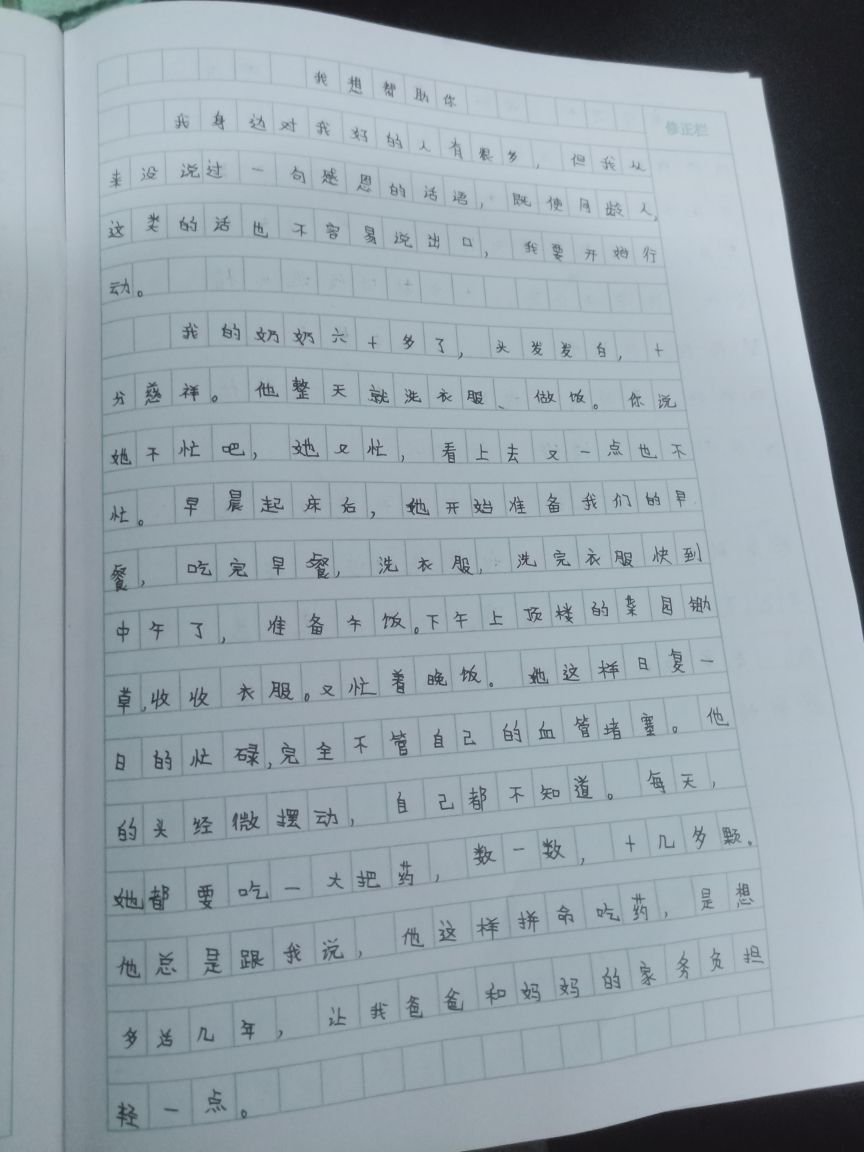 我想帮助你
修正栏
我身边对我好的人有很多，但我从
来没说过一句感恩的话语，既使同龄人，
这类的话也不容易说出口，我要开始行
动。
我的奶奶六十多了，头发发白，十
分慈祥。他整天就洗衣服、做饭。你说
她不忙吧，她又忙，看上去又一点也不
忙。早晨起床后，她开始准备我们的早
餐，吃完早餐，洗衣服，洗完衣服快到
中午了，准备午饭。下午上顶楼的菜园锄
草，收收衣服。又忙着晚饭。她这样日复一
日的忙碌，完全不管自己的血管堵塞。他
的头经微摆动，自己都不知道。每天，
她都要吃一大把药，数一数，十几多颗。
他总是跟我说，他这样拼命吃药，是想
多活几年，让我爸爸和妈妈的家务负担
轻一点。